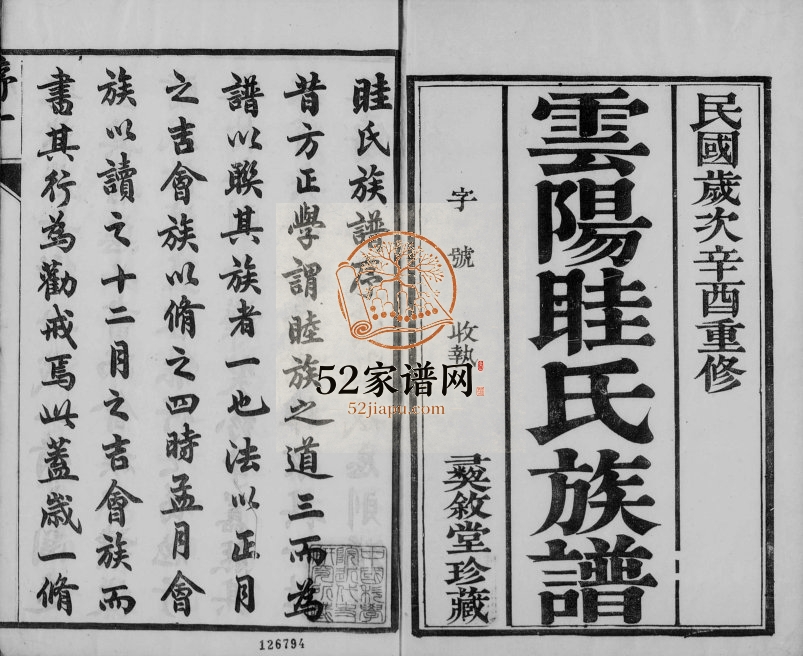 民國歲次辛酉重修
雲陽眭氏族譜
字號 收執
敘堂珍藏
眭氏族譜序
昔方正學謂睦族之道三而為
譜以聯其族者一也法以正月
之吉會族以脩之四時孟月會
族以讀之十二月之吉會族而
書其行為勸戒焉此蓋歲一脩
序一
52家谱网
52jiapu.com
126794